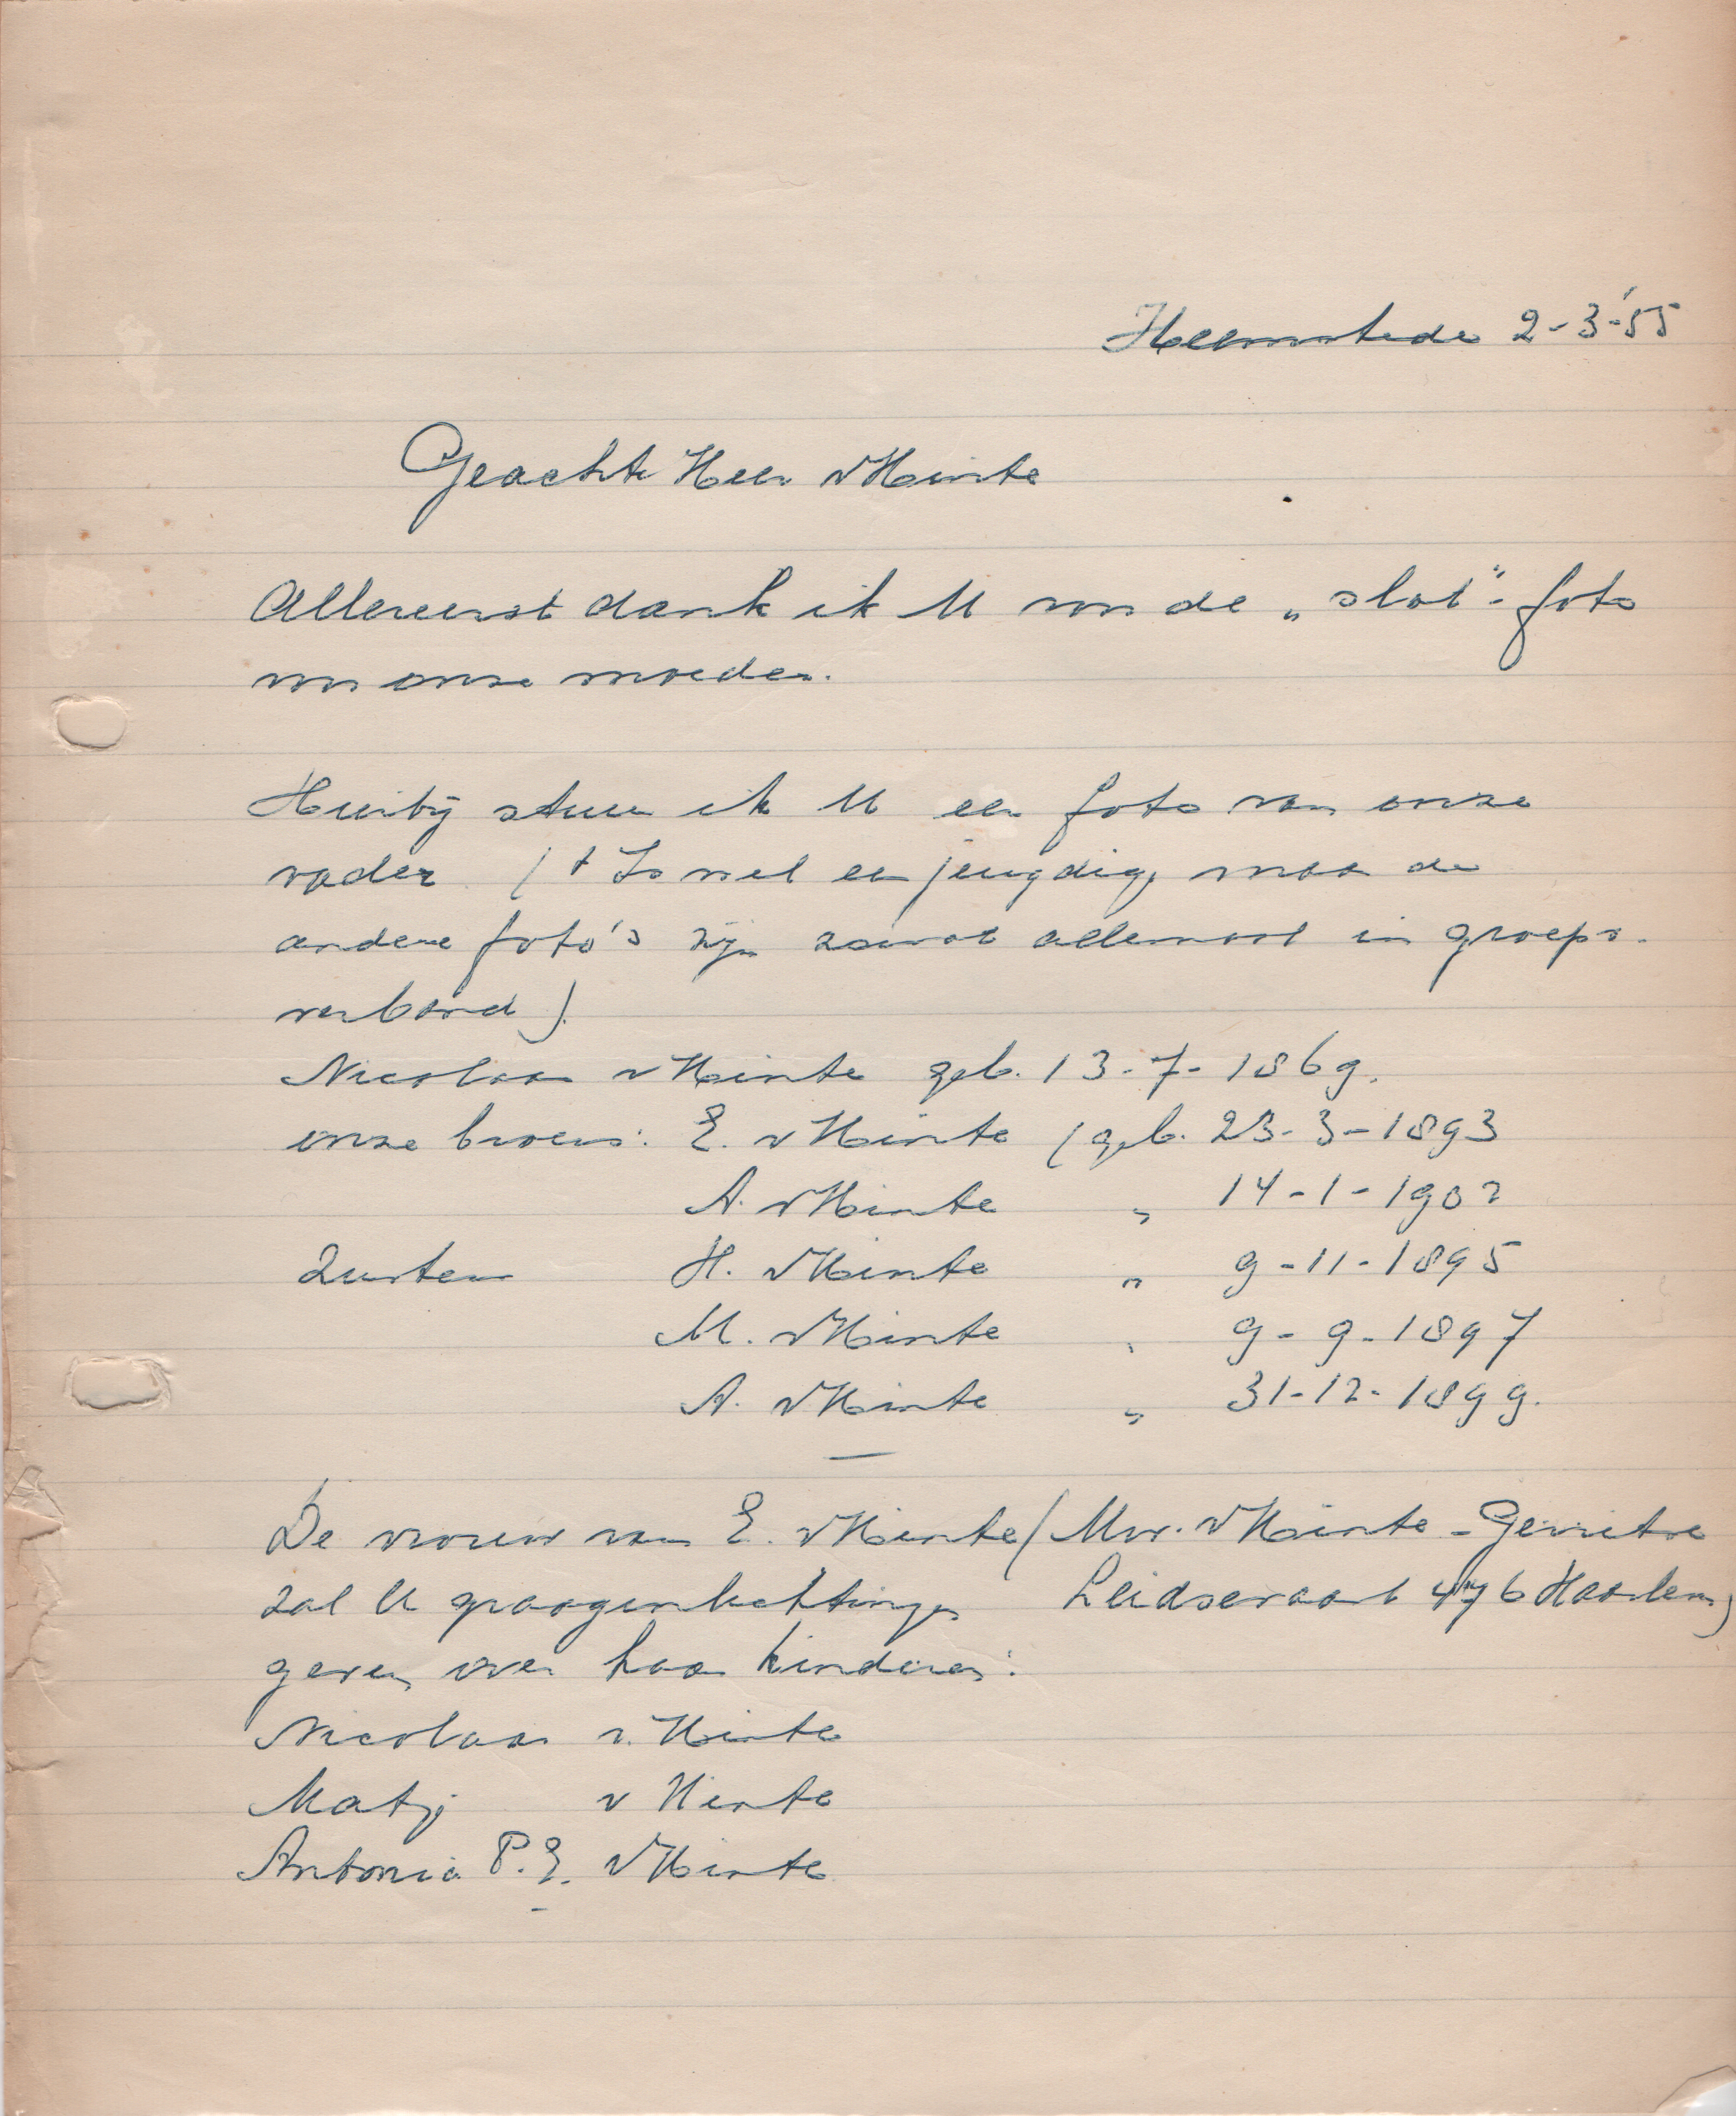 Heemstede 2-3-'55
Geachte Heer v Hinte
Allereerst dank ik U voor de „slot"-foto
van onze moeder.
Hierbij stuur ik U een foto van onze
vader ( 't Is wel een jeugdig, maar de
andere foto's zijn zowat allemaal in groeps-
verband ).
Nicolaas v Hinte geb. 13-7-1869.
onze broers: E. v Hinte ( geb. 23-3-1893
A. v Hinte „ 14-1-1902
Zusters H. v Hinte „ 9-11-1895
M. v Hinte „ 9-9-1897
A. v Hinte „ 31-12-1899.
De vrouw van E. v Hinte ( Mvr. v Hinte - Gerritse
zal U graag inlichtingen Leidsevaart 476 Haarlem )
geven over haar kinderen:
Nicolaas v. Hinte
Matij v Hinte
Antonia P.E. v Hinte